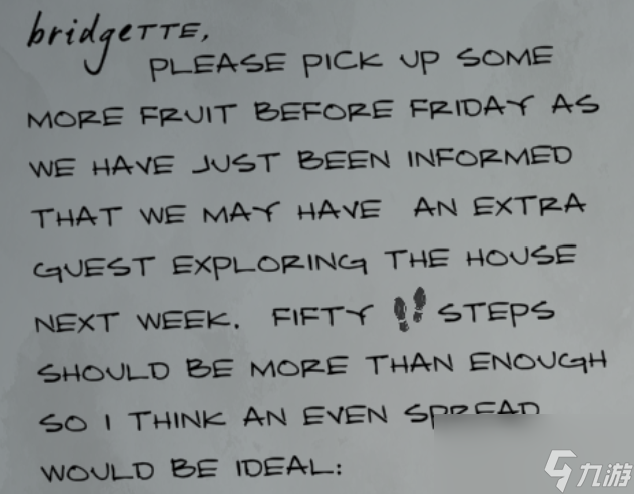 bridgeTTE,
PLEASE PICK UP SOME
MORE FRUIT BEFORE FRIDAY AS
WE HAVE JUST BEEN INFORMED
THAT WE MAY HAVE AN EXTRA
GUEST EXPLORING THE HOUSE
NEXT WEEK. FIFTY STEPS
SHOULD BE MORE THAN ENOUGH
SO I THINK AN EVEN SPREAD
WOULD BE IDEAL:
九游